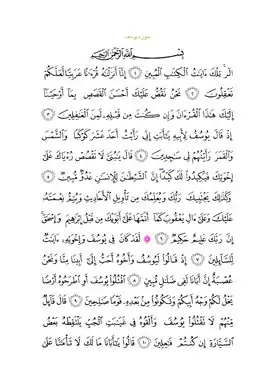 سورة يوسف
بِسْمِ اللَّهِ الرَّحْمَٰنِ الرَّحِيمِ
الٓر تِلْكَ ءَايَٰتُ الْكِتَٰبِ الْمُبِينِ ١ إِنَّا أَنزَلْنَٰهُ قُرْءَٰنًا عَرَبِيًّا لَّعَلَّكُمْ
تَعْقِلُونَ ٢ نَحْنُ نَقُصُّ عَلَيْكَ أَحْسَنَ الْقَصَصِ بِمَا أَوْحَيْنَا
إِلَيْكَ هَٰذَا الْقُرْءَانَ وَإِن كُنتَ مِن قَبْلِهِ لَمِنَ الْغَٰفِلِينَ ٣
إِذْ قَالَ يُوسُفُ لِأَبِيهِ يَٰأَبَتِ إِنِّي رَأَيْتُ أَحَدَ عَشَرَ كَوْكَبًا وَالشَّمْسَ
وَالْقَمَرَ رَأَيْتُهُمْ لِي سَٰجِدِينَ ٤ قَالَ يَٰبُنَيَّ لَا تَقْصُصْ رُءْيَاكَ عَلَىٰ
إِخْوَتِكَ فَيَكِيدُوا لَكَ كَيْدًا إِنَّ الشَّيْطَٰنَ لِلْإِنسَٰنِ عَدُوٌّ مُّبِينٌ ٥
وَكَذَٰلِكَ يَجْتَبِيكَ رَبُّكَ وَيُعَلِّمُكَ مِن تَأْوِيلِ الْأَحَادِيثِ وَيُتِمُّ نِعْمَتَهُ
عَلَيْكَ وَعَلَىٰ ءَالِ يَعْقُوبَ كَمَا أَتَمَّهَا عَلَىٰ أَبَوَيْكَ مِن قَبْلُ إِبْرَٰهِيمَ وَإِسْحَٰقَ
إِنَّ رَبَّكَ عَلِيمٌ حَكِيمٌ ٦ لَّقَدْ كَانَ فِي يُوسُفَ وَإِخْوَتِهِ ءَايَٰتٌ
لِّلسَّائِلِينَ ٧ إِذْ قَالُوا لَيُوسُفُ وَأَخُوهُ أَحَبُّ إِلَىٰ أَبِينَا مِنَّا وَنَحْنُ
عُصْبَةٌ إِنَّ أَبَانَا لَفِي ضَلَٰلٍ مُّبِينٍ ٨ اقْتُلُوا يُوسُفَ أَوِ اطْرَحُوهُ أَرْضًا
يَخْلُ لَكُمْ وَجْهُ أَبِيكُمْ وَتَكُونُوا مِن بَعْدِهِ قَوْمًا صَٰلِحِينَ ٩ قَالَ قَائِلٌ
مِّنْهُمْ لَا تَقْتُلُوا يُوسُفَ وَأَلْقُوهُ فِي غَيَٰبَتِ الْجُبِّ يَلْتَقِطْهُ بَعْضُ
السَّيَّارَةِ إِن كُنتُمْ فَٰعِلِينَ ١٠ قَالُوا يَٰأَبَانَا مَا لَكَ لَا تَأْمَ۫نَّا عَلَىٰ